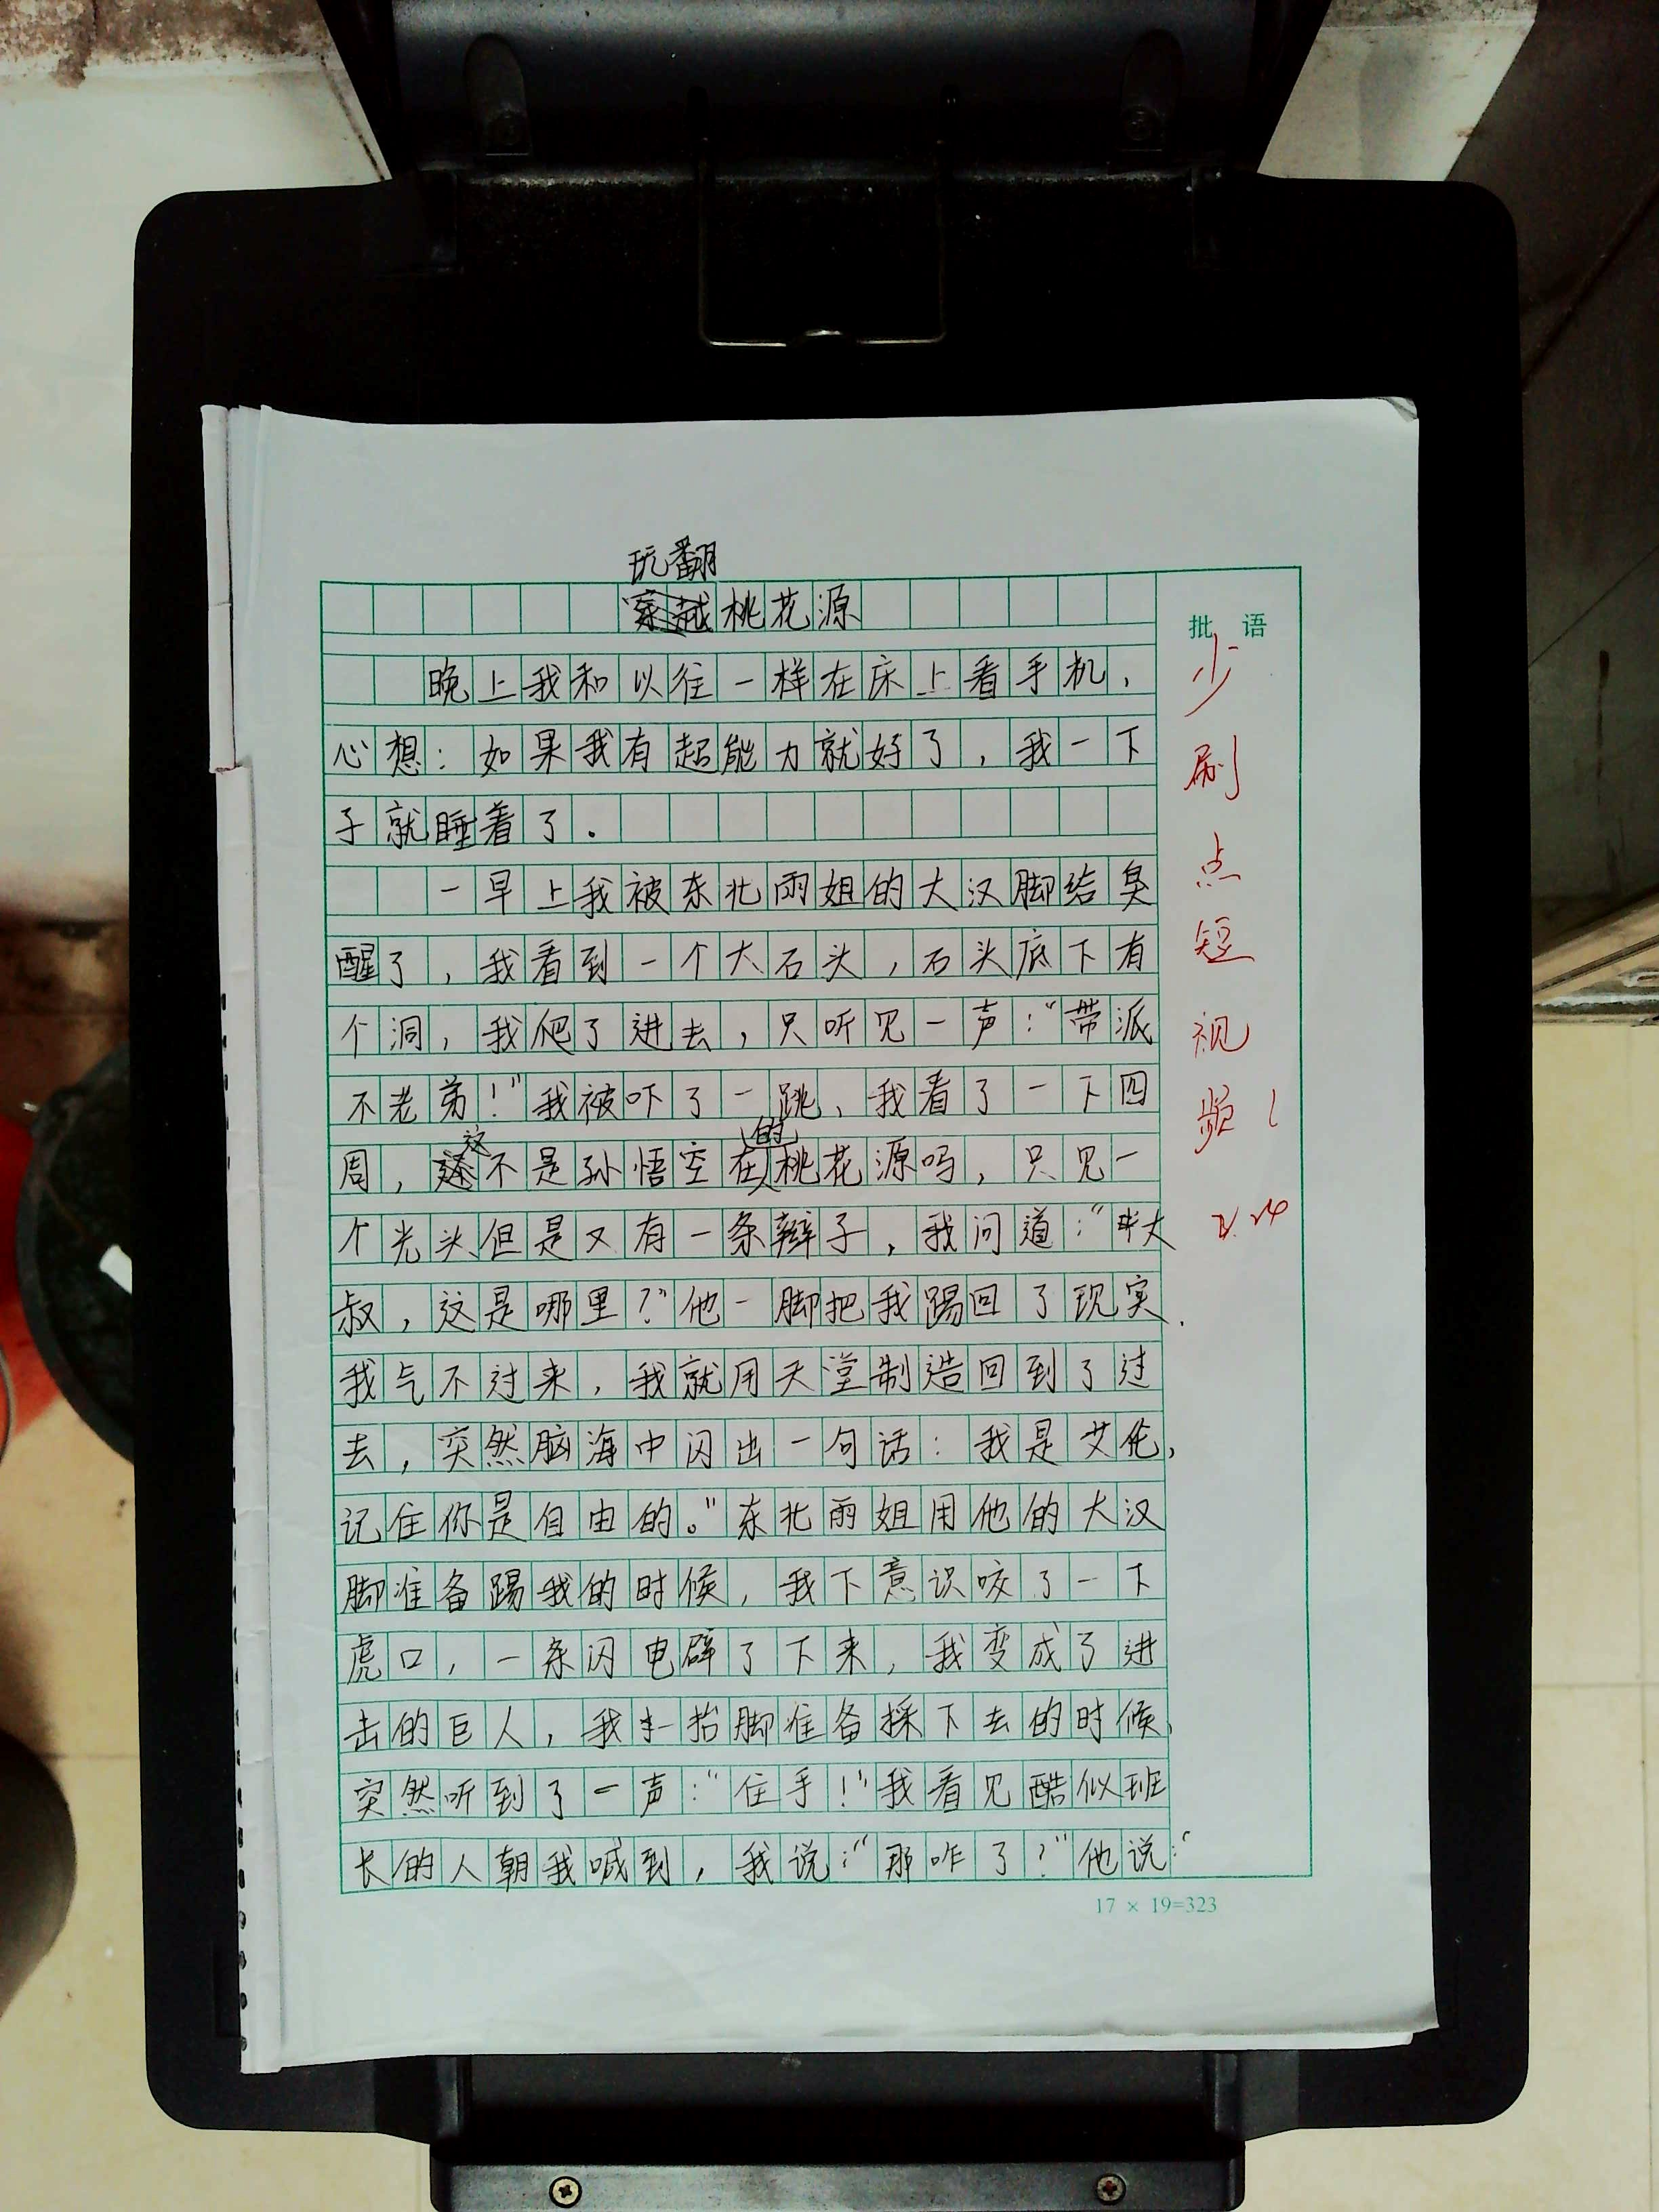 玩翻
桃花源
晚上我和以往一样在床上看手机，
心想：如果我有超能力就好了，我一下
子就睡着了．
一早上我被东北雨姐的大汉脚给臭
醒了，我看到一个大石头，石头底下有
个洞，我爬了进去，只听见一声：“带派
不老弟！”我被吓了一跳、我看了一下四
周，这不是孙悟空在的桃花源吗，只见一
个光头但是又有一条辫子，我问道：“大
叔，这是哪里？”他一脚把我踢回了现实．
我气不过来，我就用天堂制造回到了过
去，突然脑海中闪出一句话：我是艾伦，
记住你是自由的。”东北雨姐用他的大汉
脚准备踢我的时候，我下意识咬了一下
虎口，一条闪电辟了下来，我变成了进
击的巨人，我抬脚准备採下去的时候，
突然听到了一声：“住手！”我看见酷似班
长的人朝我喊到，我说：“那咋了？”他说：“
17 × 19=323
批 语
少
刷
点
短
视
频！